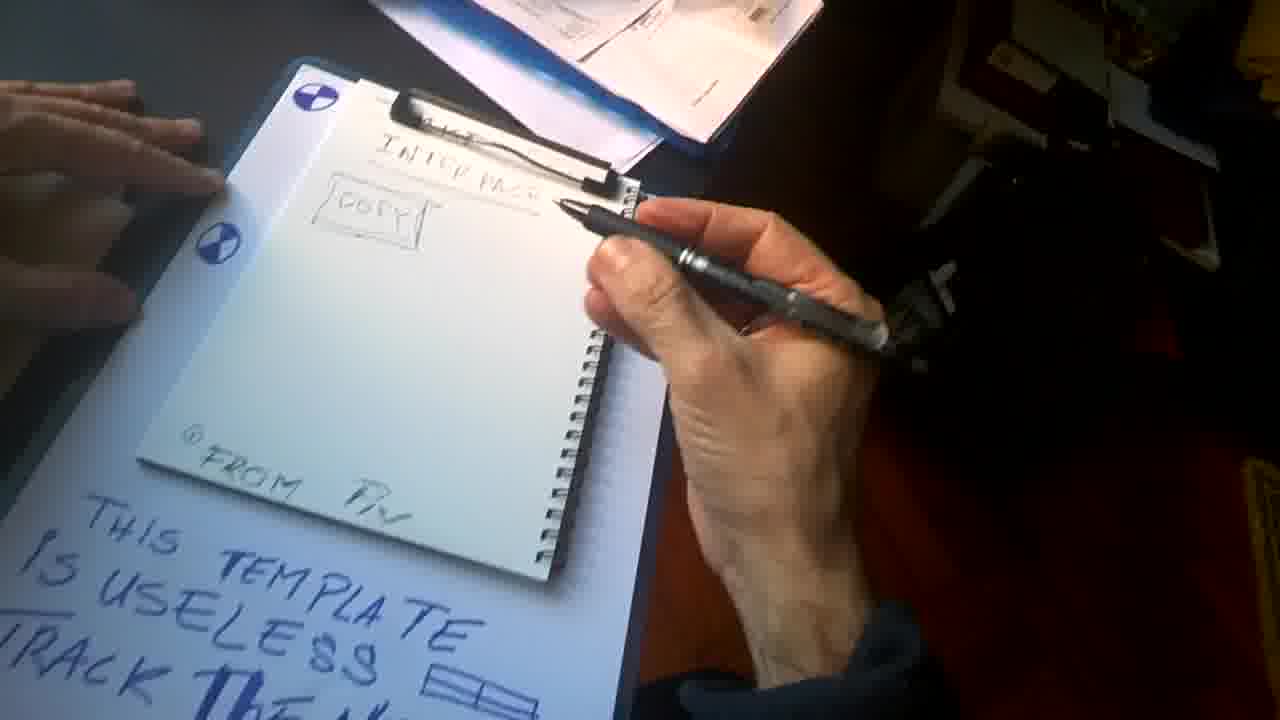 INTERFACE
COPY
① FROM Piv
THIS TEMPLATE
IS USELESS
TRACK THE